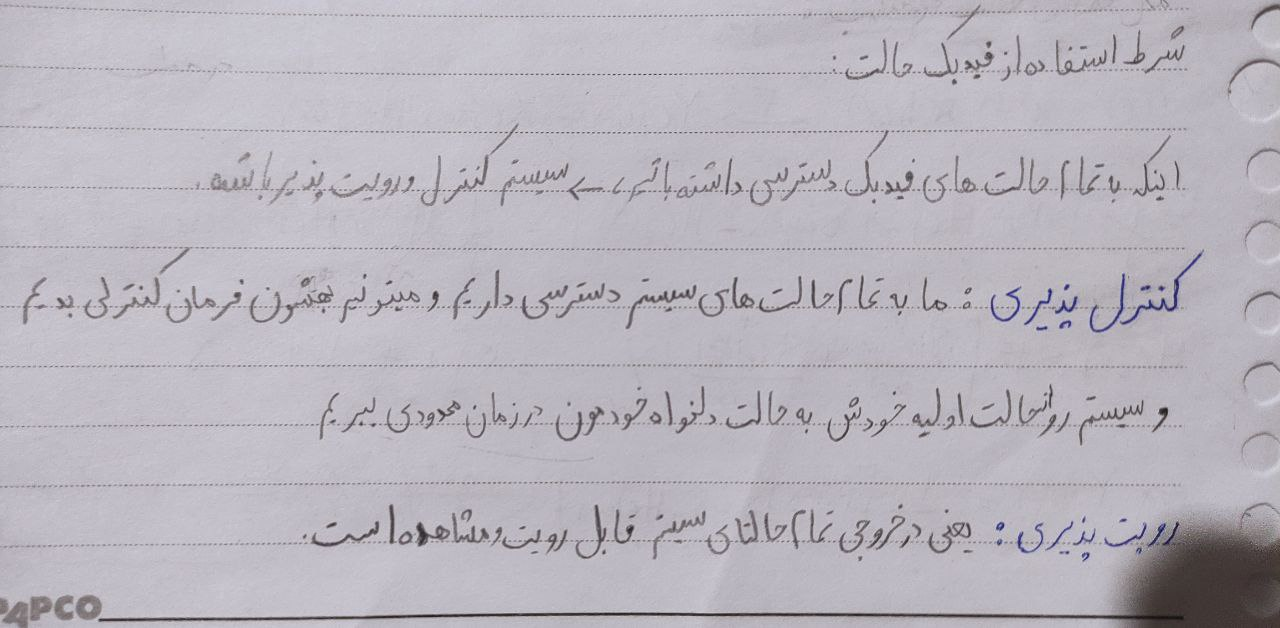 شرط استفاده از فیدبک حالت:
اینکه به تمام حالت های فیدبک دسترسی داشته باشیم، ← سیستم کنترل و رویت پذیر باشه.
کنترل پذیری: ما به تمام حالت های سیستم دسترسی داریم و میتونیم بهشون فرمان کنترلی بدیم
و سیستم رو از حالت اولیه خودش به حالت دلخواه خودمون در زمان محدودی ببریم
رویت پذیری: یعنی در خروجی تمام حالتای سیستم قابل رویت و مشاهده است.
PAPCO